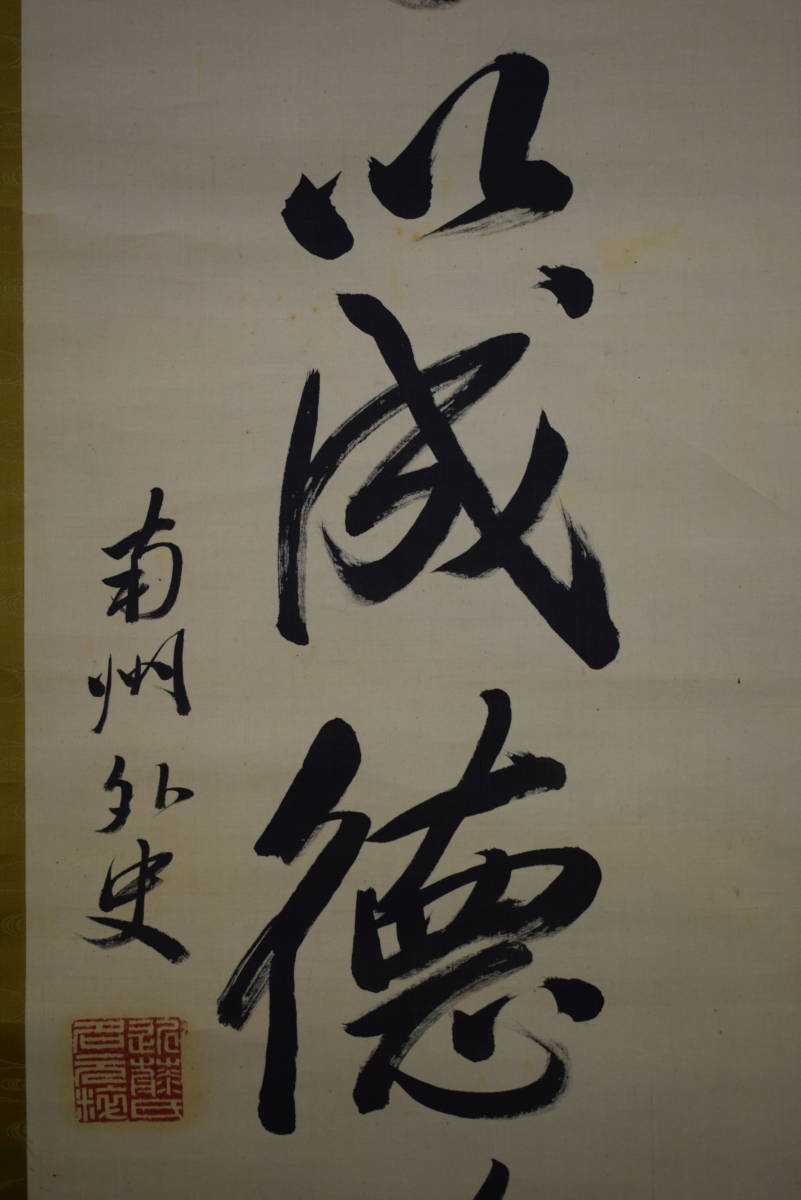 以成德
南州外史